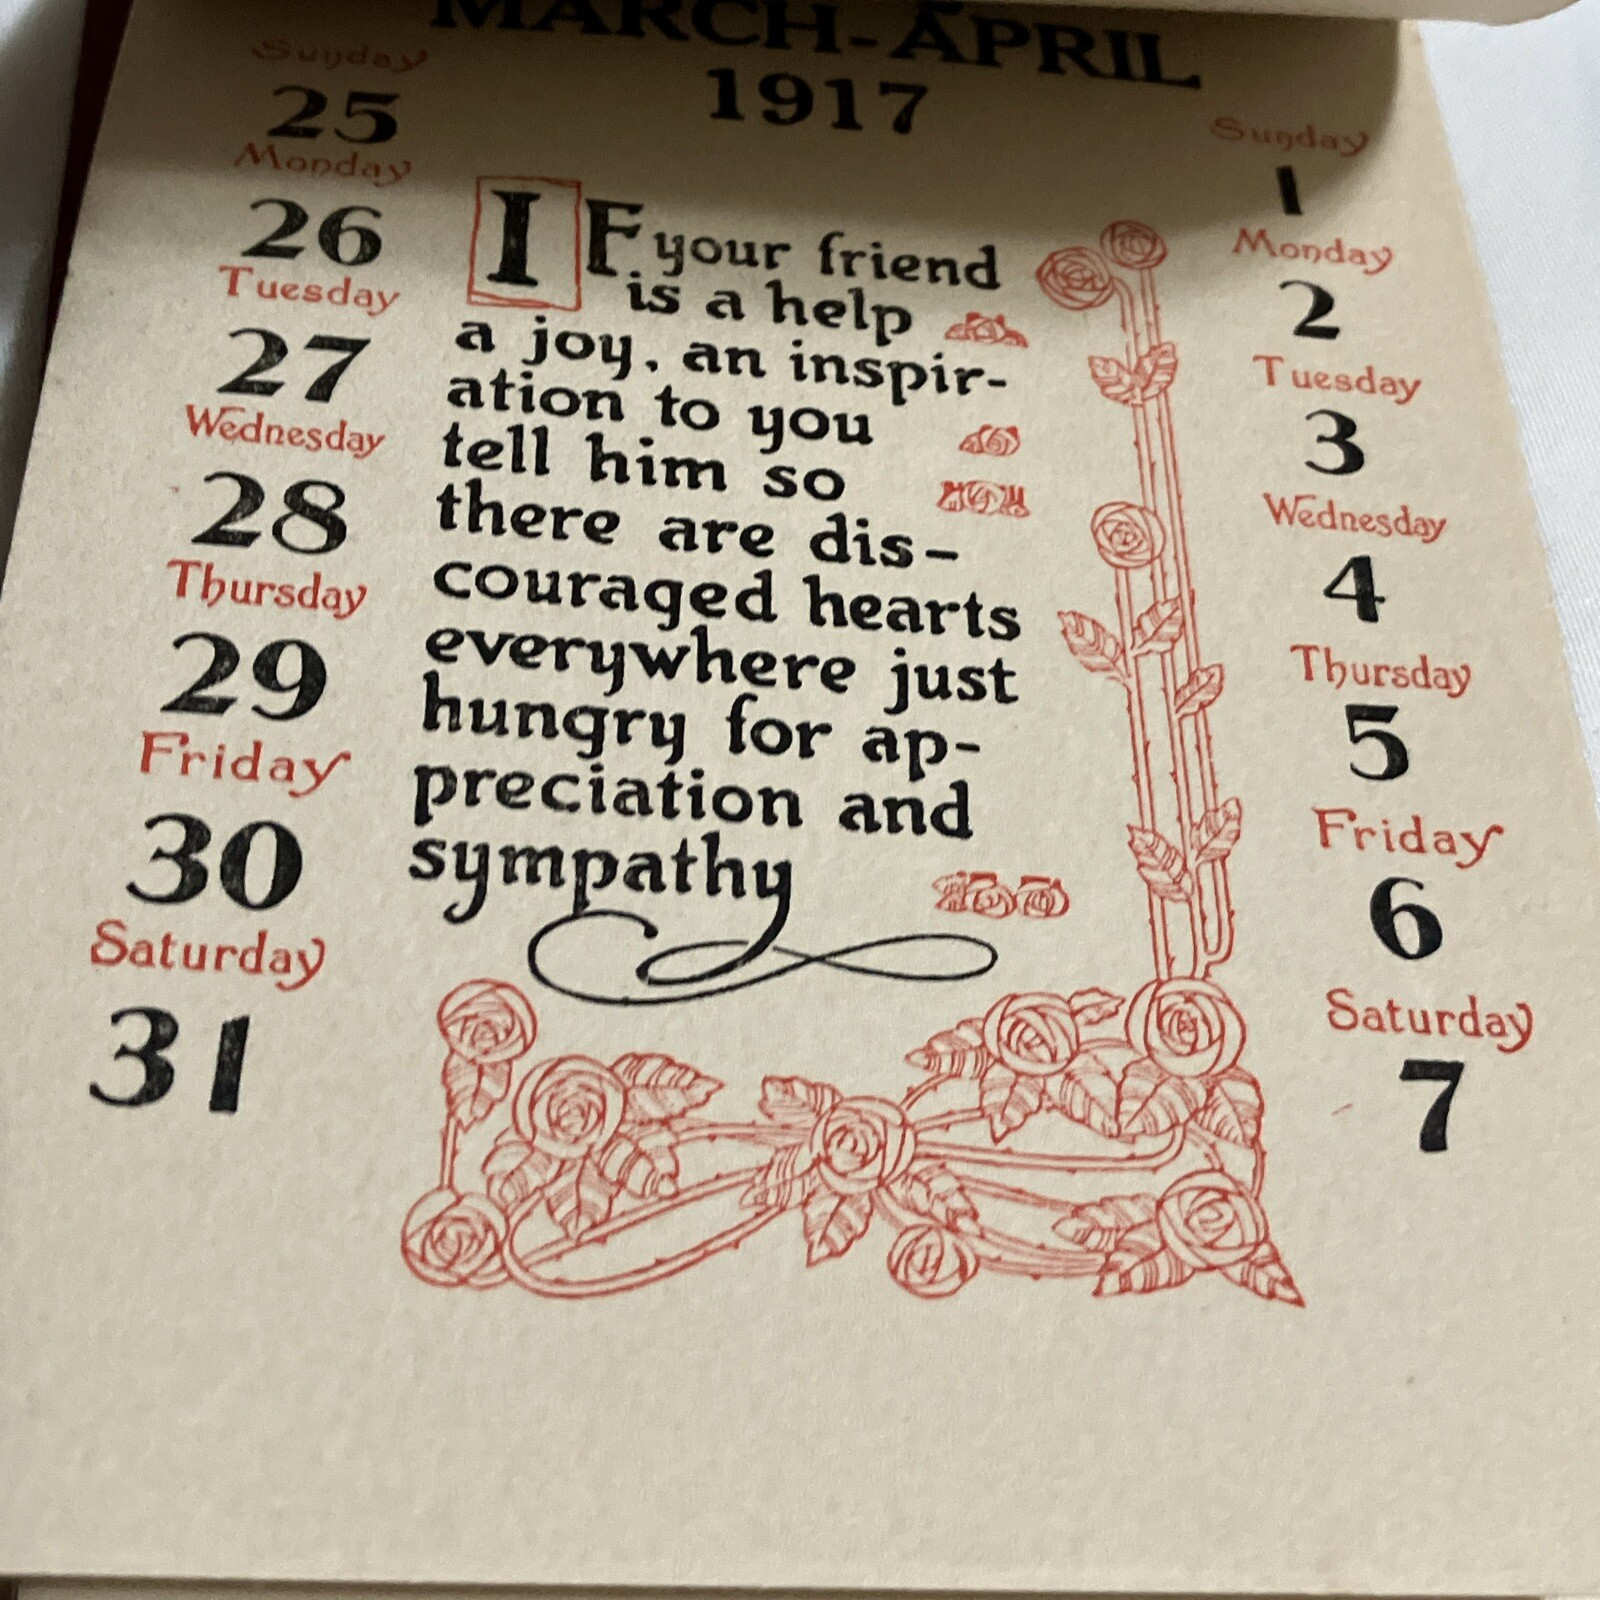 MARCH-APRIL
1917
Sunday
25
Monday
26
Tuesday
27
Wednesday
28
Thursday
29
Friday
30
Saturday
31
IF your friend
is a help
a joy, an inspir-
ation to you
tell him so
there are dis-
couraged hearts
everywhere just
hungry for ap-
preciation and
sympathy
Sunday
1
Monday
2
Tuesday
3
Wednesday
4
Thursday
5
Friday
6
Saturday
7